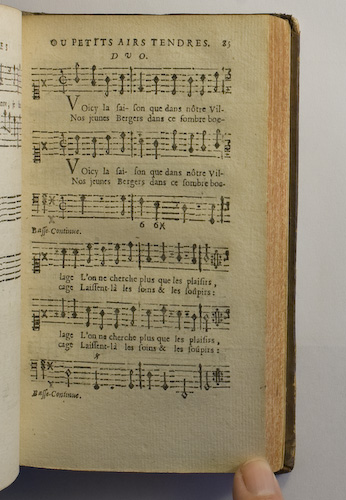 OU PETITS AIRS TENDRES. 85
DUO.
VOicy la sai- son que dans nôtre Vil-
Nos jeunes Bergers dans ce sombre boc-
VOicy la sai- son que dans nôtre Vil-
Nos jeunes Bergers dans ce sombre boc-
6 6X
Basse-Continue.
lage L'on ne cherche plus que les plaisirs,
cage Laissent-là les soins & les soûpirs:
lage L'on ne cherche plus que les plaisirs,
cage Laissent-là les soins & les soûpirs:
X
Basse-Continue.